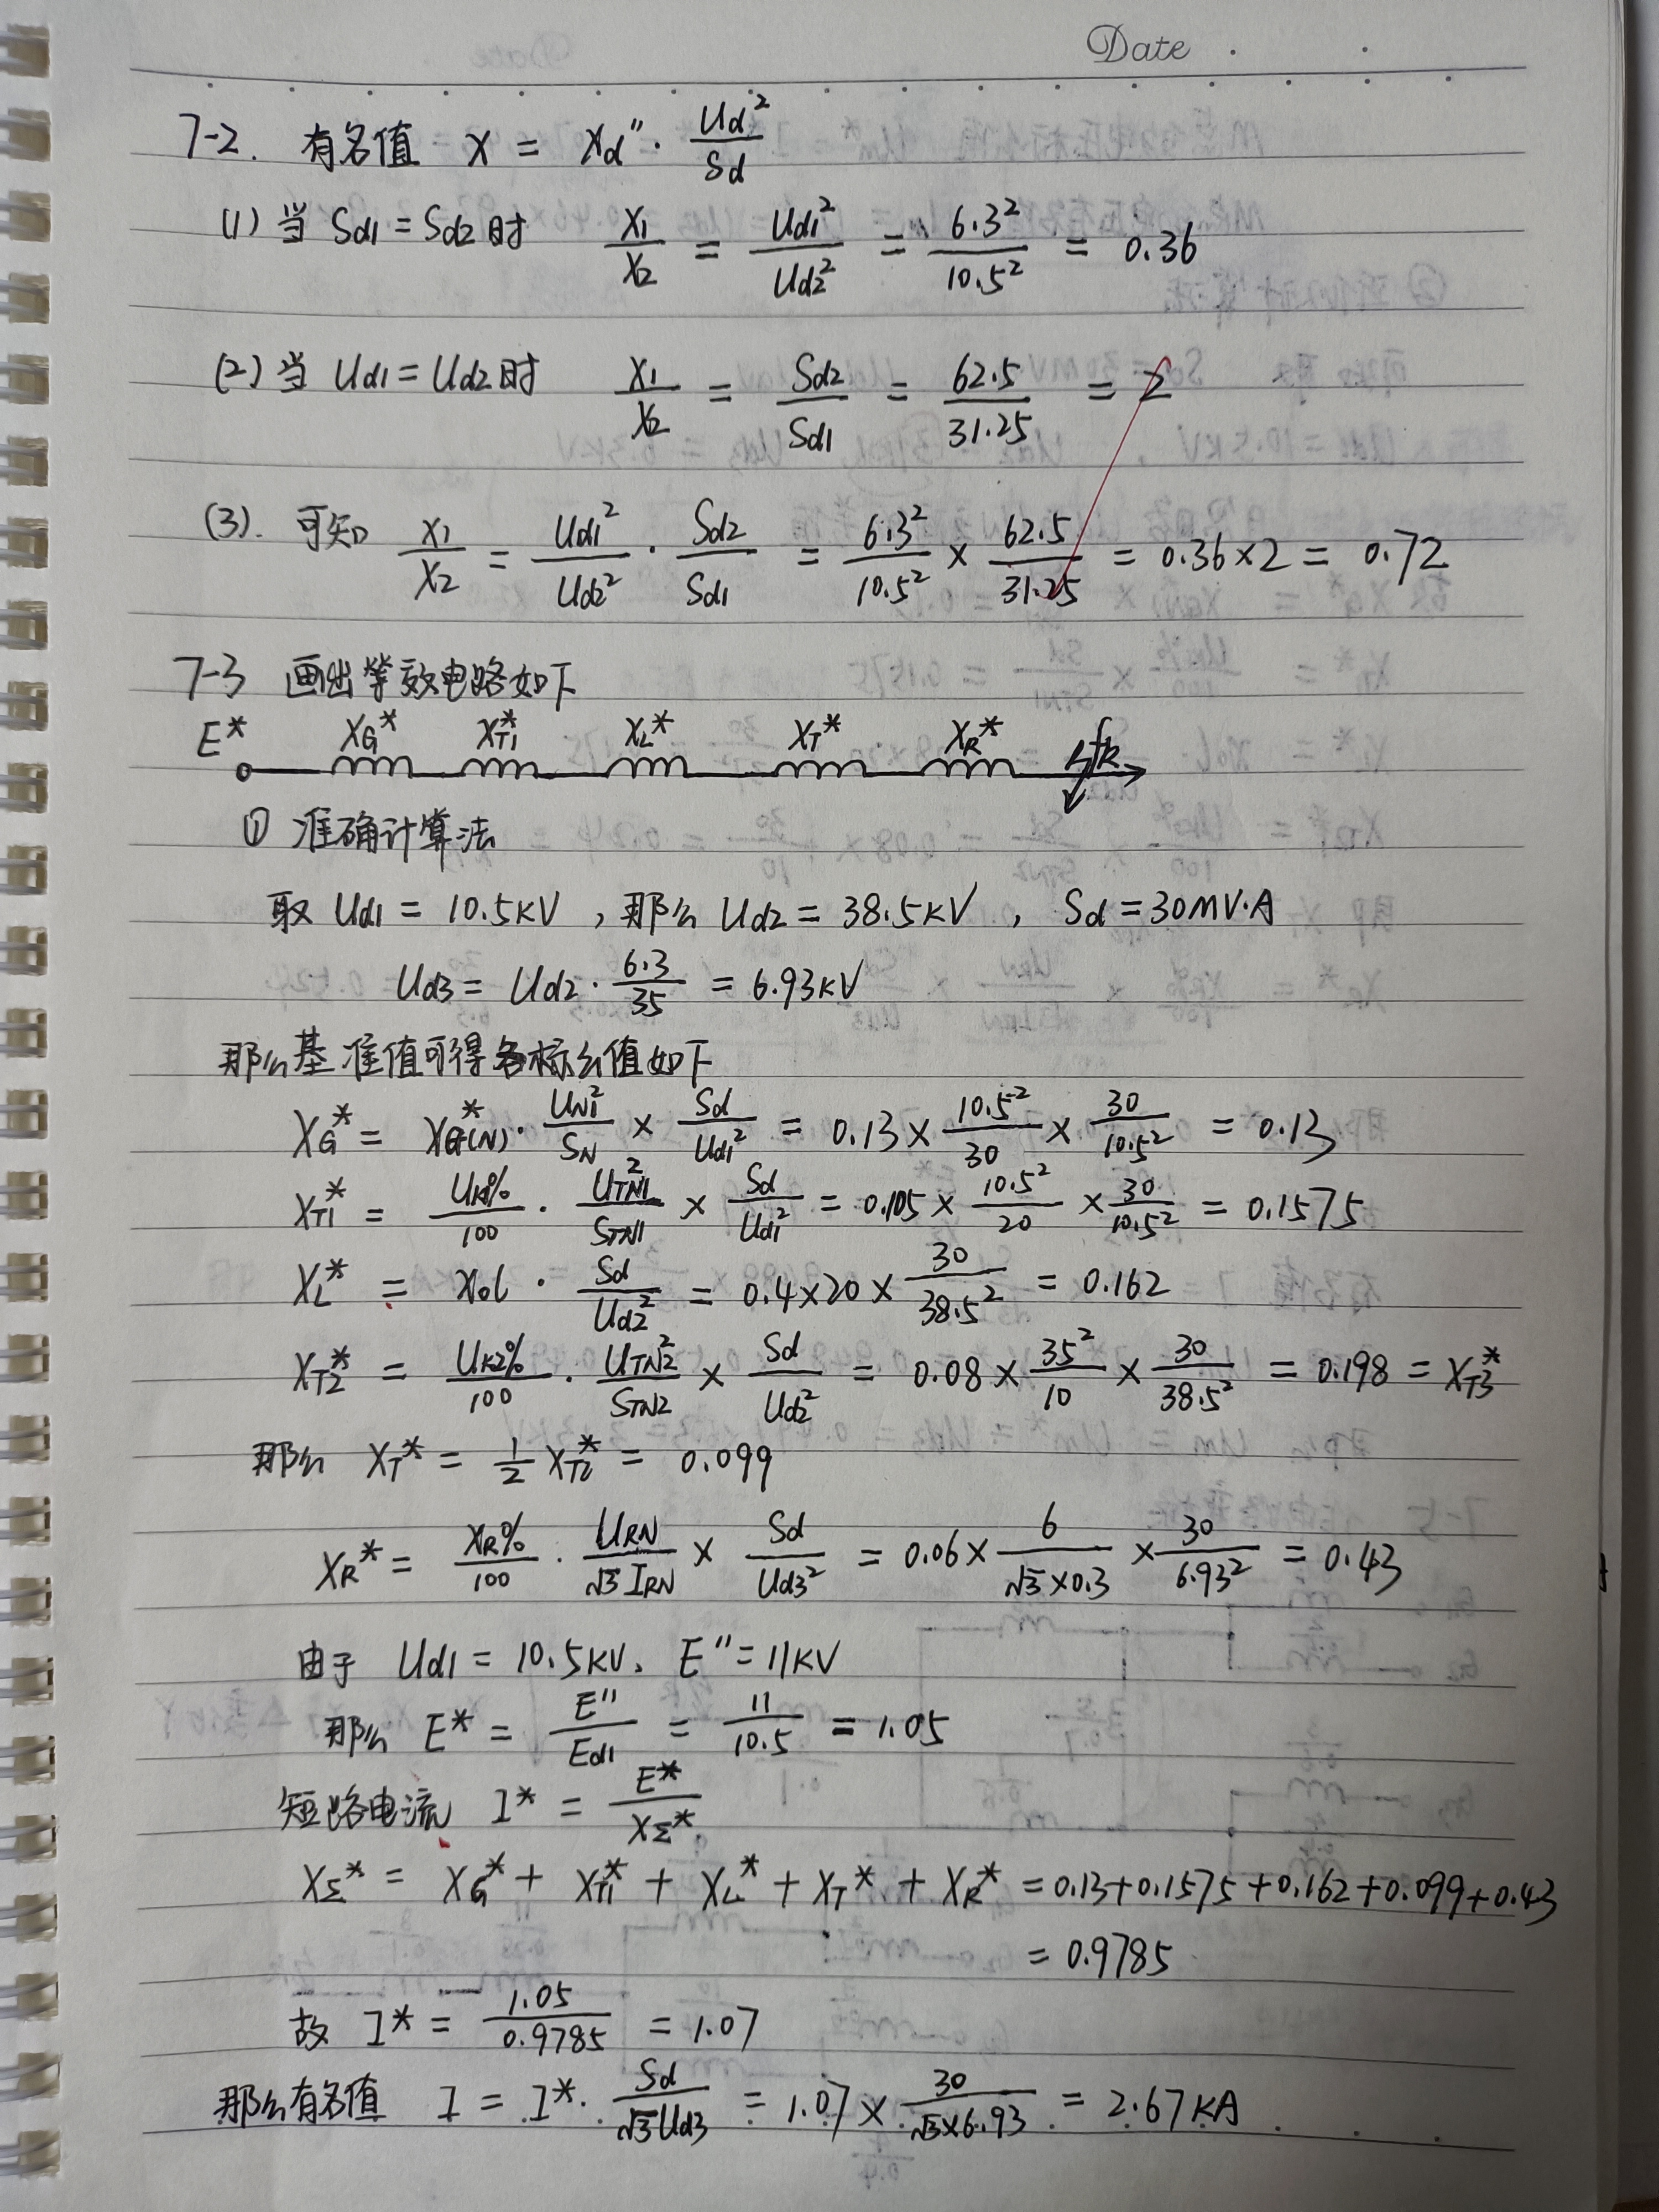 Date
7-2. 有名值 X = Xd″ · Ud²/Sd
(1) 当 Sd1 = Sd2 时 X1/X2 = Ud1²/Ud2² = 6.3²/10.5² = 0.36
(2) 当 Ud1 = Ud2 时 X1/X2 = Sd2/Sd1 = 62.5/31.25 = 2
(3). 可知 X1/X2 = Ud1²/Ud2² · Sd2/Sd1 = 6.3²/10.5² × 62.5/31.25 = 0.36×2 = 0.72
7-3 画出等效电路如下
E* XG* XT1* XL* XT* XR* fk
① 准确计算法
取 Ud1 = 10.5KV , 那么 Ud2 = 38.5KV , Sd = 30MV·A
Ud3 = Ud2 · 6.3/35 = 6.93KV
那么基准值可得各标幺值如下
XG* = XG(N)* · UN1²/SN × Sd/Ud1² = 0.13 × 10.5²/30 × 30/10.5² = 0.13
XT1* = UK1%/100 · UTN1²/STN1 × Sd/Ud1² = 0.105 × 10.5²/20 × 30/10.5² = 0.1575
XL* = X0l · Sd/Ud2² = 0.4×20× 30/38.5² = 0.162
XT2* = UK2%/100 · UTN2²/STN2 × Sd/Ud2² = 0.08 × 35²/10 × 30/38.5² = 0.198 = XT3*
那么 XT* = 1/2 XT2* = 0.099
XR* = XR%/100 · URN/√3 IRN × Sd/Ud3² = 0.06 × 6/√3×0.3 × 30/6.93² = 0.43
由于 Ud1 = 10.5KV, E″ = 11KV
那么 E* = E″/Ed1 = 11/10.5 = 1.05
短路电流 I* = E*/XΣ*
XΣ* = XG* + XT1* + XL* + XT* + XR* = 0.13+0.1575+0.162+0.099+0.43
= 0.9785
故 I* = 1.05/0.9785 = 1.07
那么有名值 I = I* · Sd/√3Ud3 = 1.07 × 30/√3×6.93 = 2.67KA